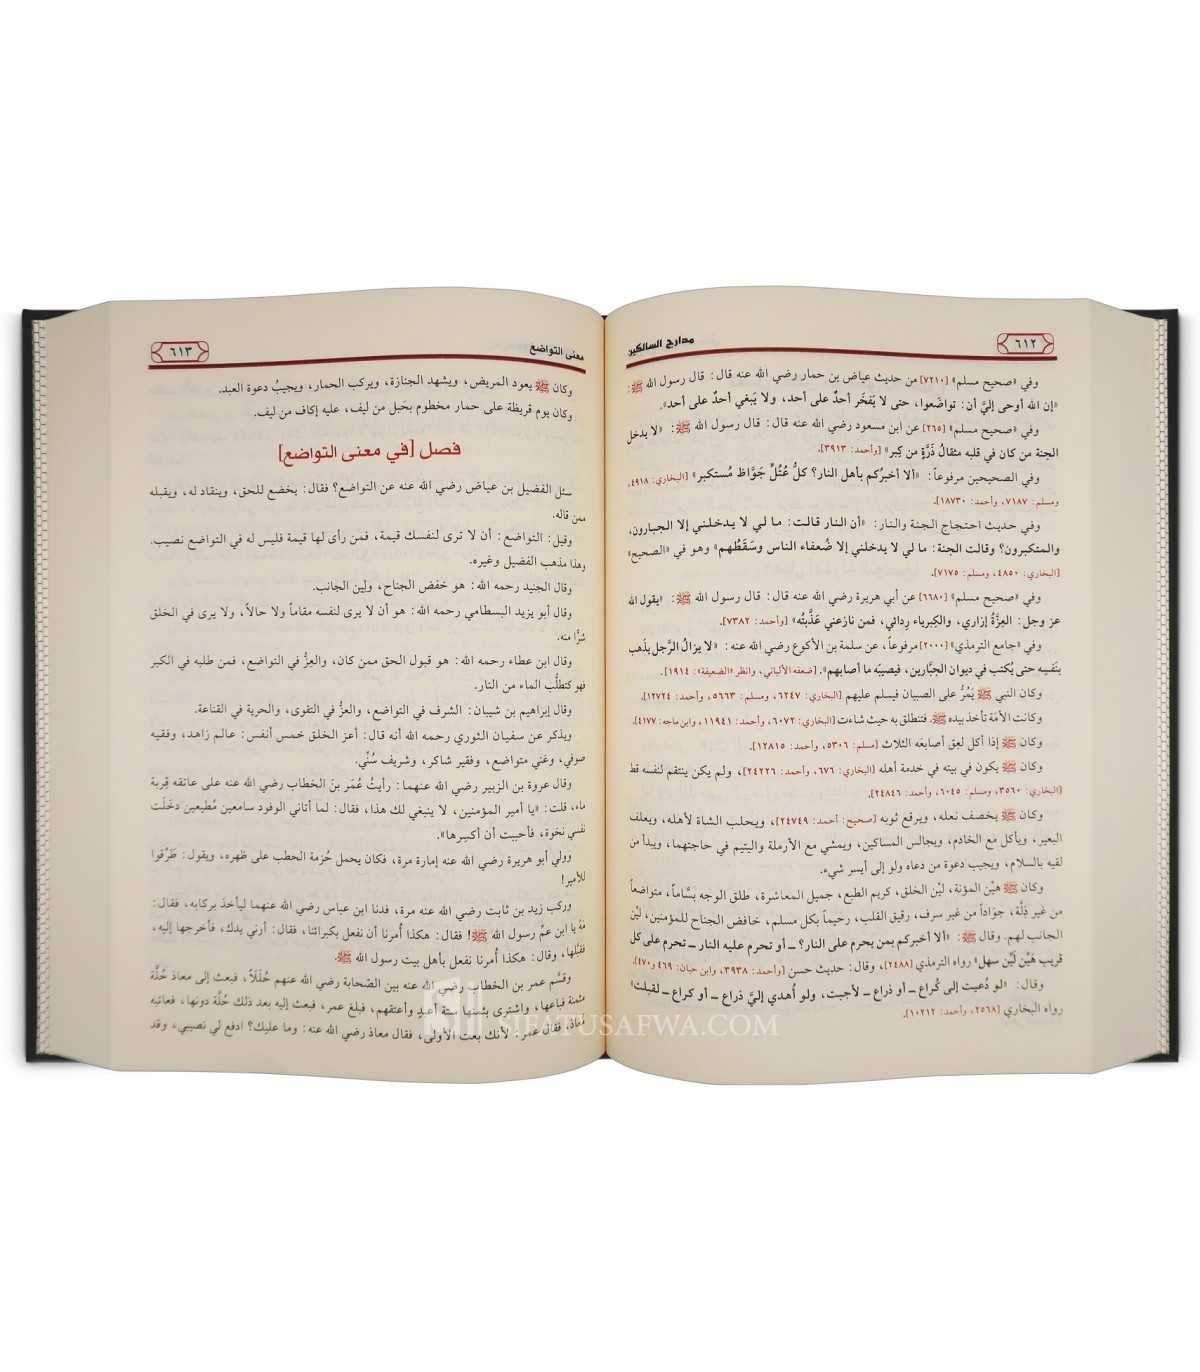 ٦١٢
مدارج السالكين
وفي «صحيح مسلم» [٧٢١٠] من حديث عياض بن حمار رضي الله عنه قال: قال رسول الله ﷺ:
«إن الله أوحى إليَّ أن: تواضَعوا، حتى لا يَفخَر أحدٌ على أحد، ولا يَبغي أحدٌ على أحد».
وفي «صحيح مسلم» [٢٦٥] عن ابن مسعود رضي الله عنه قال: قال رسول الله ﷺ: «لا يدخل
الجنة من كان في قلبه مثقالُ ذَرَّةٍ من كِبر» [وأحمد: ٣٩١٣].
وفي الصحيحين مرفوعاً: «ألا أخبرُكم بأهل النار؟ كلُّ عُتُلٍّ جَوَّاظ مُستكبر» [البخاري: ٤٩١٨،
ومسلم: ٧١٨٧، وأحمد: ١٨٧٣٠].
وفي حديث احتجاج الجنة والنار: «أن النار قالت: ما لي لا يدخلني إلا الجبارون،
والمتكبرون؟ وقالت الجنة: ما لي لا يدخلني إلا ضُعفاء الناس وسَقَطُهم» وهو في «الصحيح»
[البخاري: ٤٨٥٠، ومسلم: ٧١٧٥].
وفي «صحيح مسلم» [٦٦٨٠] عن أبي هريرة رضي الله عنه قال: قال رسول الله ﷺ: «يقول الله
عز وجل: العِزَّةُ إزاري، والكِبرياء رِدائي، فمن نازعني عَذَّبتُه» [وأحمد: ٧٣٨٢].
وفي «جامع الترمذي» [٢٠٠٠] مرفوعاً، عن سلمة بن الأكوع رضي الله عنه: «لا يزالُ الرَّجل يذَهب
بنَفسِه حتى يُكتب في ديوان الجبَّارين، فيصيبُه ما أصابهم». [ضعفه الألباني، وانظر «الضعيفة»: ١٩١٤].
وكان النبي ﷺ يَمُرُّ على الصبيان فيسلم عليهم [البخاري: ٦٢٤٧، ومسلم: ٥٦٦٣، وأحمد: ١٢٧٢٤].
وكانت الأمَة تأخذ بيده ﷺ، فتنطلق به حيث شاءت [البخاري: ٦٠٧٢، وأحمد: ١١٩٤١، وابن ماجه: ٤١٧٧].
وكان ﷺ إذا أكل لعِق أصابعَه الثلاث [مسلم: ٥٣٠٦، وأحمد: ١٢٨١٥].
وكان ﷺ يكون في بيته في خدمة أهله [البخاري: ٦٧٦، وأحمد: ٢٤٢٢٦]، ولم يكن ينتقم لنفسه قط
[البخاري: ٣٥٦٠، ومسلم: ٦٠٤٥، وأحمد: ٢٤٨٤٦].
وكان ﷺ يخصف نعله، ويرقع ثوبه [صحيح: أحمد: ٢٤٧٤٩]، ويحلب الشاة لأهله، ويعلف
البعير، ويأكل مع الخادم، ويجالس المساكين، ويمشي مع الأرملة واليتيم في حاجتهما، ويبدأ من
لقيه بالسلام، ويجيب دعوة من دعاه ولو إلى أيسر شيء.
وكان ﷺ هيِّن المؤنة، ليِّن الخلق، كريم الطبع، جميل المعاشرة، طلق الوجه بسَّاماً، متواضعاً
من غير ذِلَّة، جوّاداً من غير سرف، رقيق القلب، رحيماً بكل مسلم، خافض الجناح للمؤمنين، ليِّن
الجانب لهم. وقال ﷺ: «ألا أخبركم بمن يحرم على النار؟ ـ أو تحرم عليه النار ـ تحرم على كل
قريب هَيِّن لَيِّن سهل» رواه الترمذي [٢٤٨٨]، وقال: حديث حسن [وأحمد: ٣٩٣٨، وابن حبان: ٤٦٩ و٤٧٠].
وقال: «لو دُعيت إلى كُراع ـ أو ذراع ـ لأجبت، ولو أُهدي إليَّ ذراع ـ أو كراع ـ لقبلت»
رواه البخاري [٢٥٦٨، وأحمد: ١٠٢١٢].
معنى التواضع
٦١٣
وكان ﷺ يعود المريض، ويشهد الجنازة، ويركب الحمار، ويجيبُ دعوة العبد.
وكان يوم قريظة على حمار مخطوم بحَبل من ليف، عليه إكاف من ليف.
فصل [في معنى التواضع]
سئل الفضيل بن عياض رضي الله عنه عن التواضع؟ فقال: يخضع للحق، وينقاد له، ويقبله
ممن قاله.
وقيل: التواضع: أن لا ترى لنفسك قيمة، فمن رأى لها قيمة فليس له في التواضع نصيب.
وهذا مذهب الفضيل وغيره.
وقال الجنيد رحمه الله: هو خفض الجناح، ولين الجانب.
وقال أبو يزيد البسطامي رحمه الله: هو أن لا يرى لنفسه مقاماً ولا حالاً، ولا يرى في الخلق
شرًّا منه.
وقال ابن عطاء رحمه الله: هو قبول الحق ممن كان، والعِزُّ في التواضع، فمن طلبه في الكبر
فهو كتطلُّب الماء من النار.
وقال إبراهيم بن شيبان: الشرف في التواضع، والعزُّ في التقوى، والحرية في القناعة.
ويذكر عن سفيان الثوري رحمه الله أنه قال: أعز الخلق خمس أنفس: عالم زاهد، وفقيه
صوفي، وغني متواضع، وفقير شاكر، وشريف سُنِّي.
وقال عروة بن الزبير رضي الله عنهما: رأيتُ عُمَر بنَ الخطاب رضي الله عنه على عاتقه قِربة
ماء، قلت: «يا أمير المؤمنين، لا ينبغي لك هذا، فقال: لما أتاني الوفود سامعين مُطيعين دخَلَت
نفسي نخوة، فأحببت أن أكسِرها».
وولي أبو هريرة رضي الله عنه إمارة مرة، فكان يحمل حُزمة الحطب على ظهره، ويقول: طَرِّقوا
للأمير!
وركب زيد بن ثابت رضي الله عنه مرة، فدنا ابن عباس رضي الله عنهما ليأخذ بركابه، فقال:
مَهْ يا ابن عمِّ رسول الله ﷺ! فقال: هكذا أُمرنا أن نفعل بكبرائنا، فقال: أرني يدك، فأخرجها إليه،
فقبَّلها، وقال: هكذا أُمرنا نفعل بأهل بيت رسول الله ﷺ.
وقسَّم عمر بن الخطاب رضي الله عنه بين الصَّحابة رضي الله عنهم حُلَلاً، فبعث إلى معاذ حُلَّة
مثمنة فباعها، واشترى بثمنها ستة أعبدٍ وأعتقهم، فبلغ عمر، فبعث إليه بعد ذلك حُلَّة دونها، فعاتبه
معاذ، فقال عمر: لأنك بعت الأولى، فقال معاذ رضي الله عنه: وما عليك؟ ادفع لي نصيبي، وقد
SIFATUSAFWA.COM